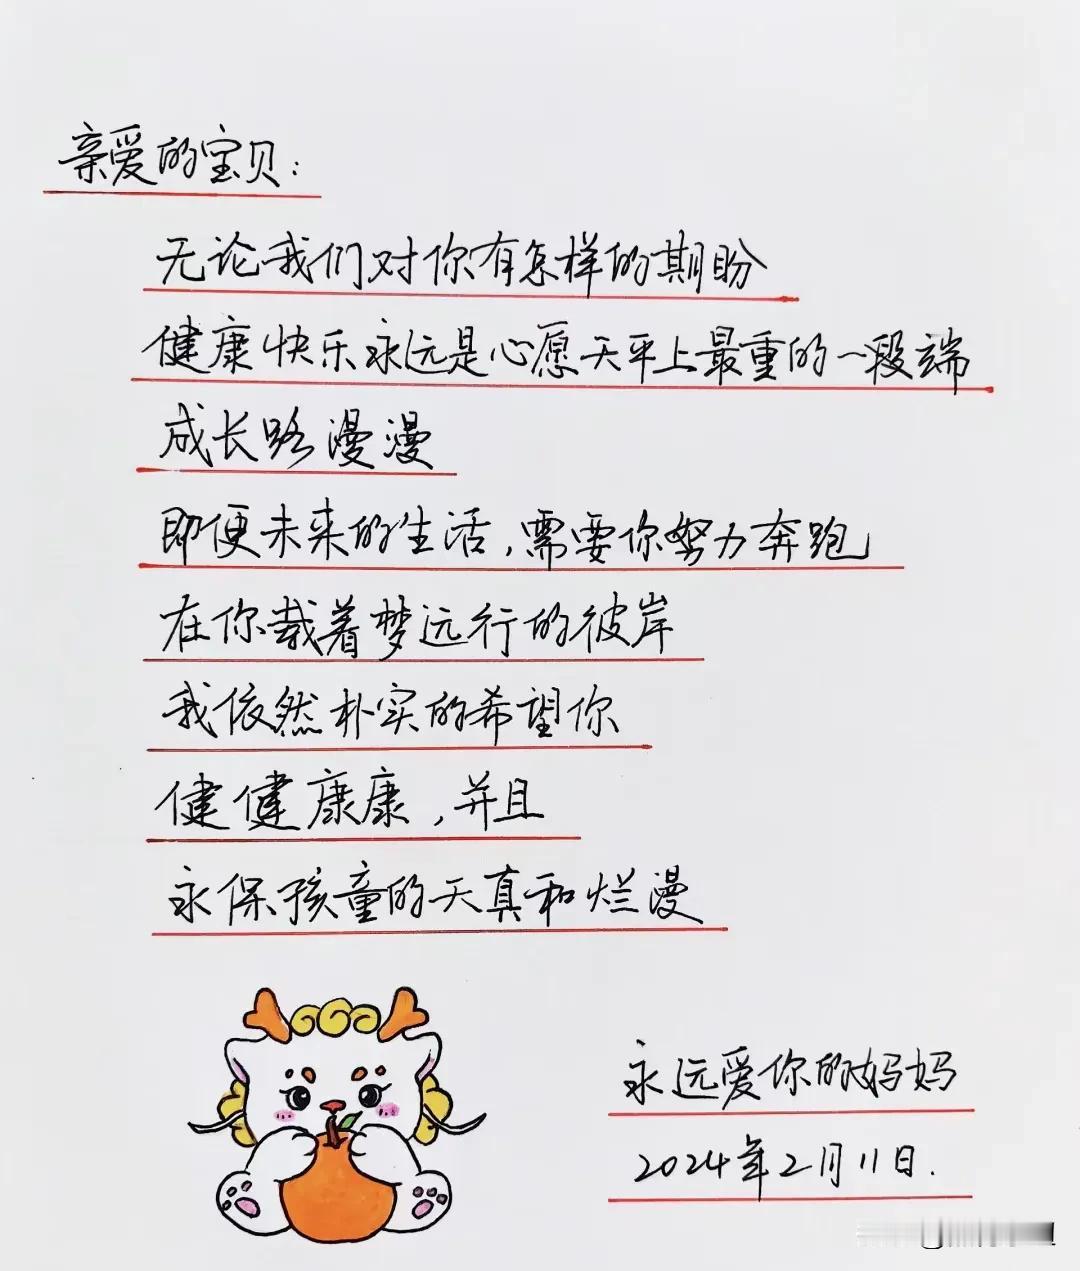 亲爱的宝贝：
无论我们对你有怎样的期盼
健康快乐永远是心愿天平上最重的一段端
成长路漫漫
即便未来的生活，需要你努力奔跑
在你载着梦远行的彼岸
我依然朴实的希望你
健健康康，并且
永保孩童的天真和烂漫
永远爱你的妈妈
2024年2月11日.